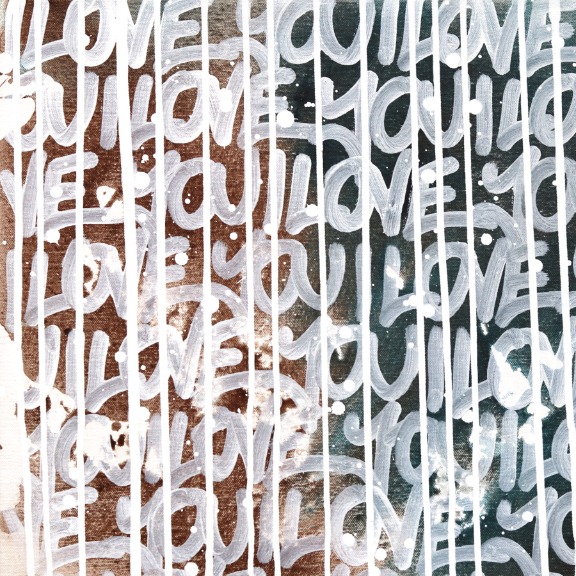 I LOVE YOU I LOVE
YOU I LOVE YOU I LO
VE YOU I LOVE YO
I LOVE YOU I LOVE
U I LOVE YOU I LOV
YOU I LOVE YOU I
VE YOU I LOVE YO